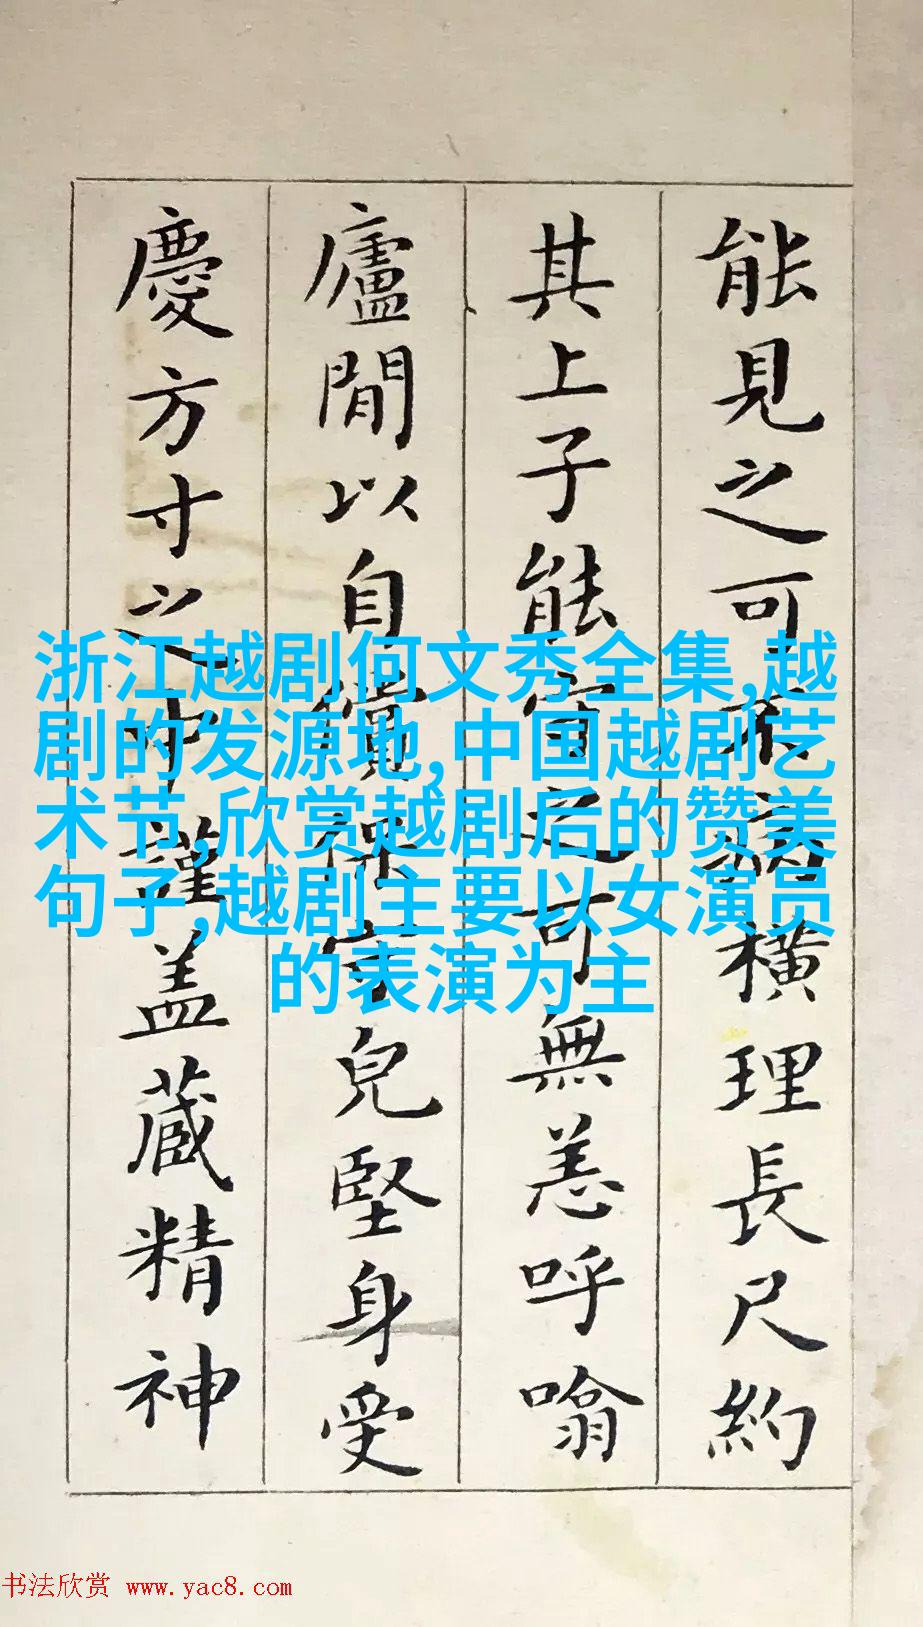 能見之可不病橫理長尺約
其上子能守之可無恙呼噏
廬閒以自償保守兒堅身受
慶方寸之中謹盖藏精神
浙江越剧何文秀全集,越
剧的发源地,中国越剧艺
术节,欣赏越剧后的赞美
句子,越剧主要以女演员
的表演为主
书法欣赏 www.yac8.com